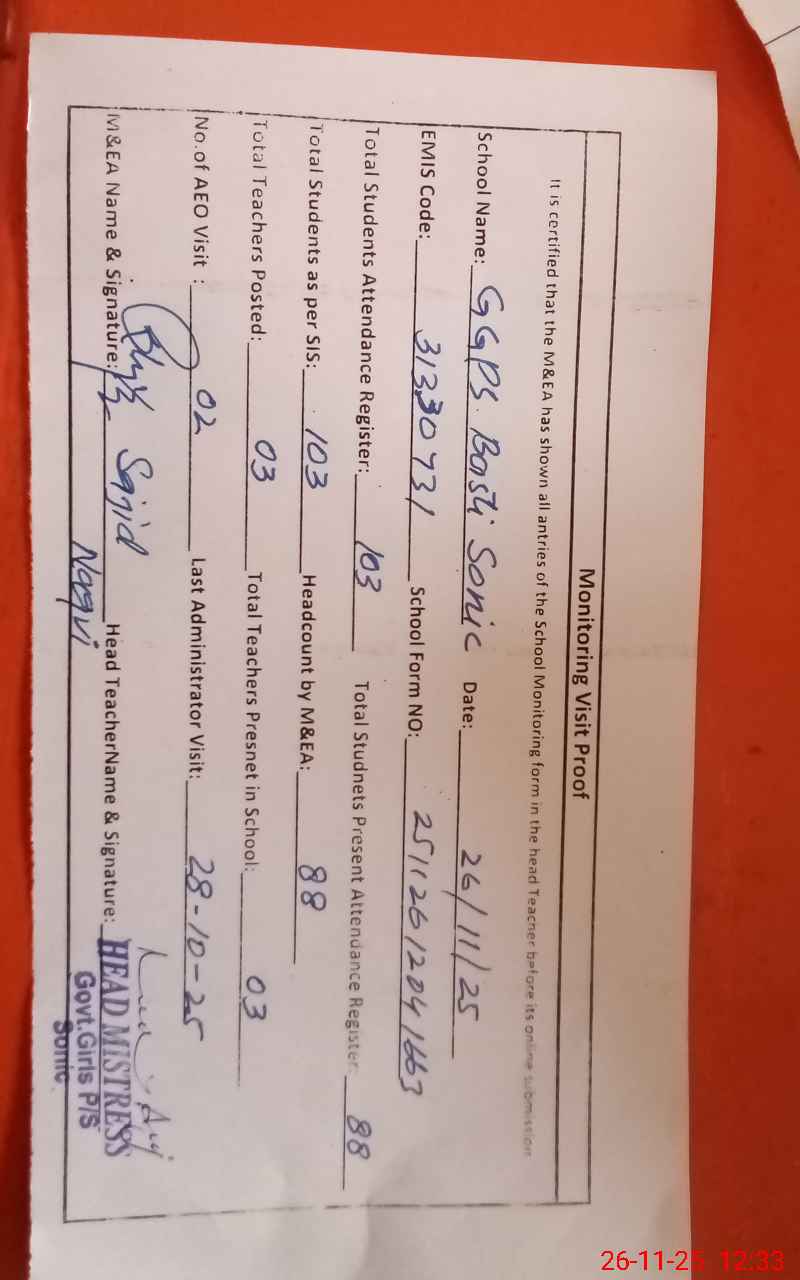 Monitoring Visit Proof
It is certified that the M&EA has shown all antries of the School Monitoring form in the head Teacher before its online submission
School Name: GGPS. Basti Sonic Date: 26/11/25
EMIS Code: 31330731 School Form NO: 25112612041663
Total Students Attendance Register: 103 Total Studnets Present Attendance Register: 88
Total Students as per SIS: 103 Headcount by M&EA: 88
Total Teachers Posted: 03 Total Teachers Presnet in School: 03
No.of AEO Visit : 02 Last Administrator Visit: 28-10-25
M&EA Name & Signature: Sajid Naqvi Head TeacherName & Signature:
HEAD MISTRESS
Govt.Girls P/S
Sonic
26-11-25 12:33